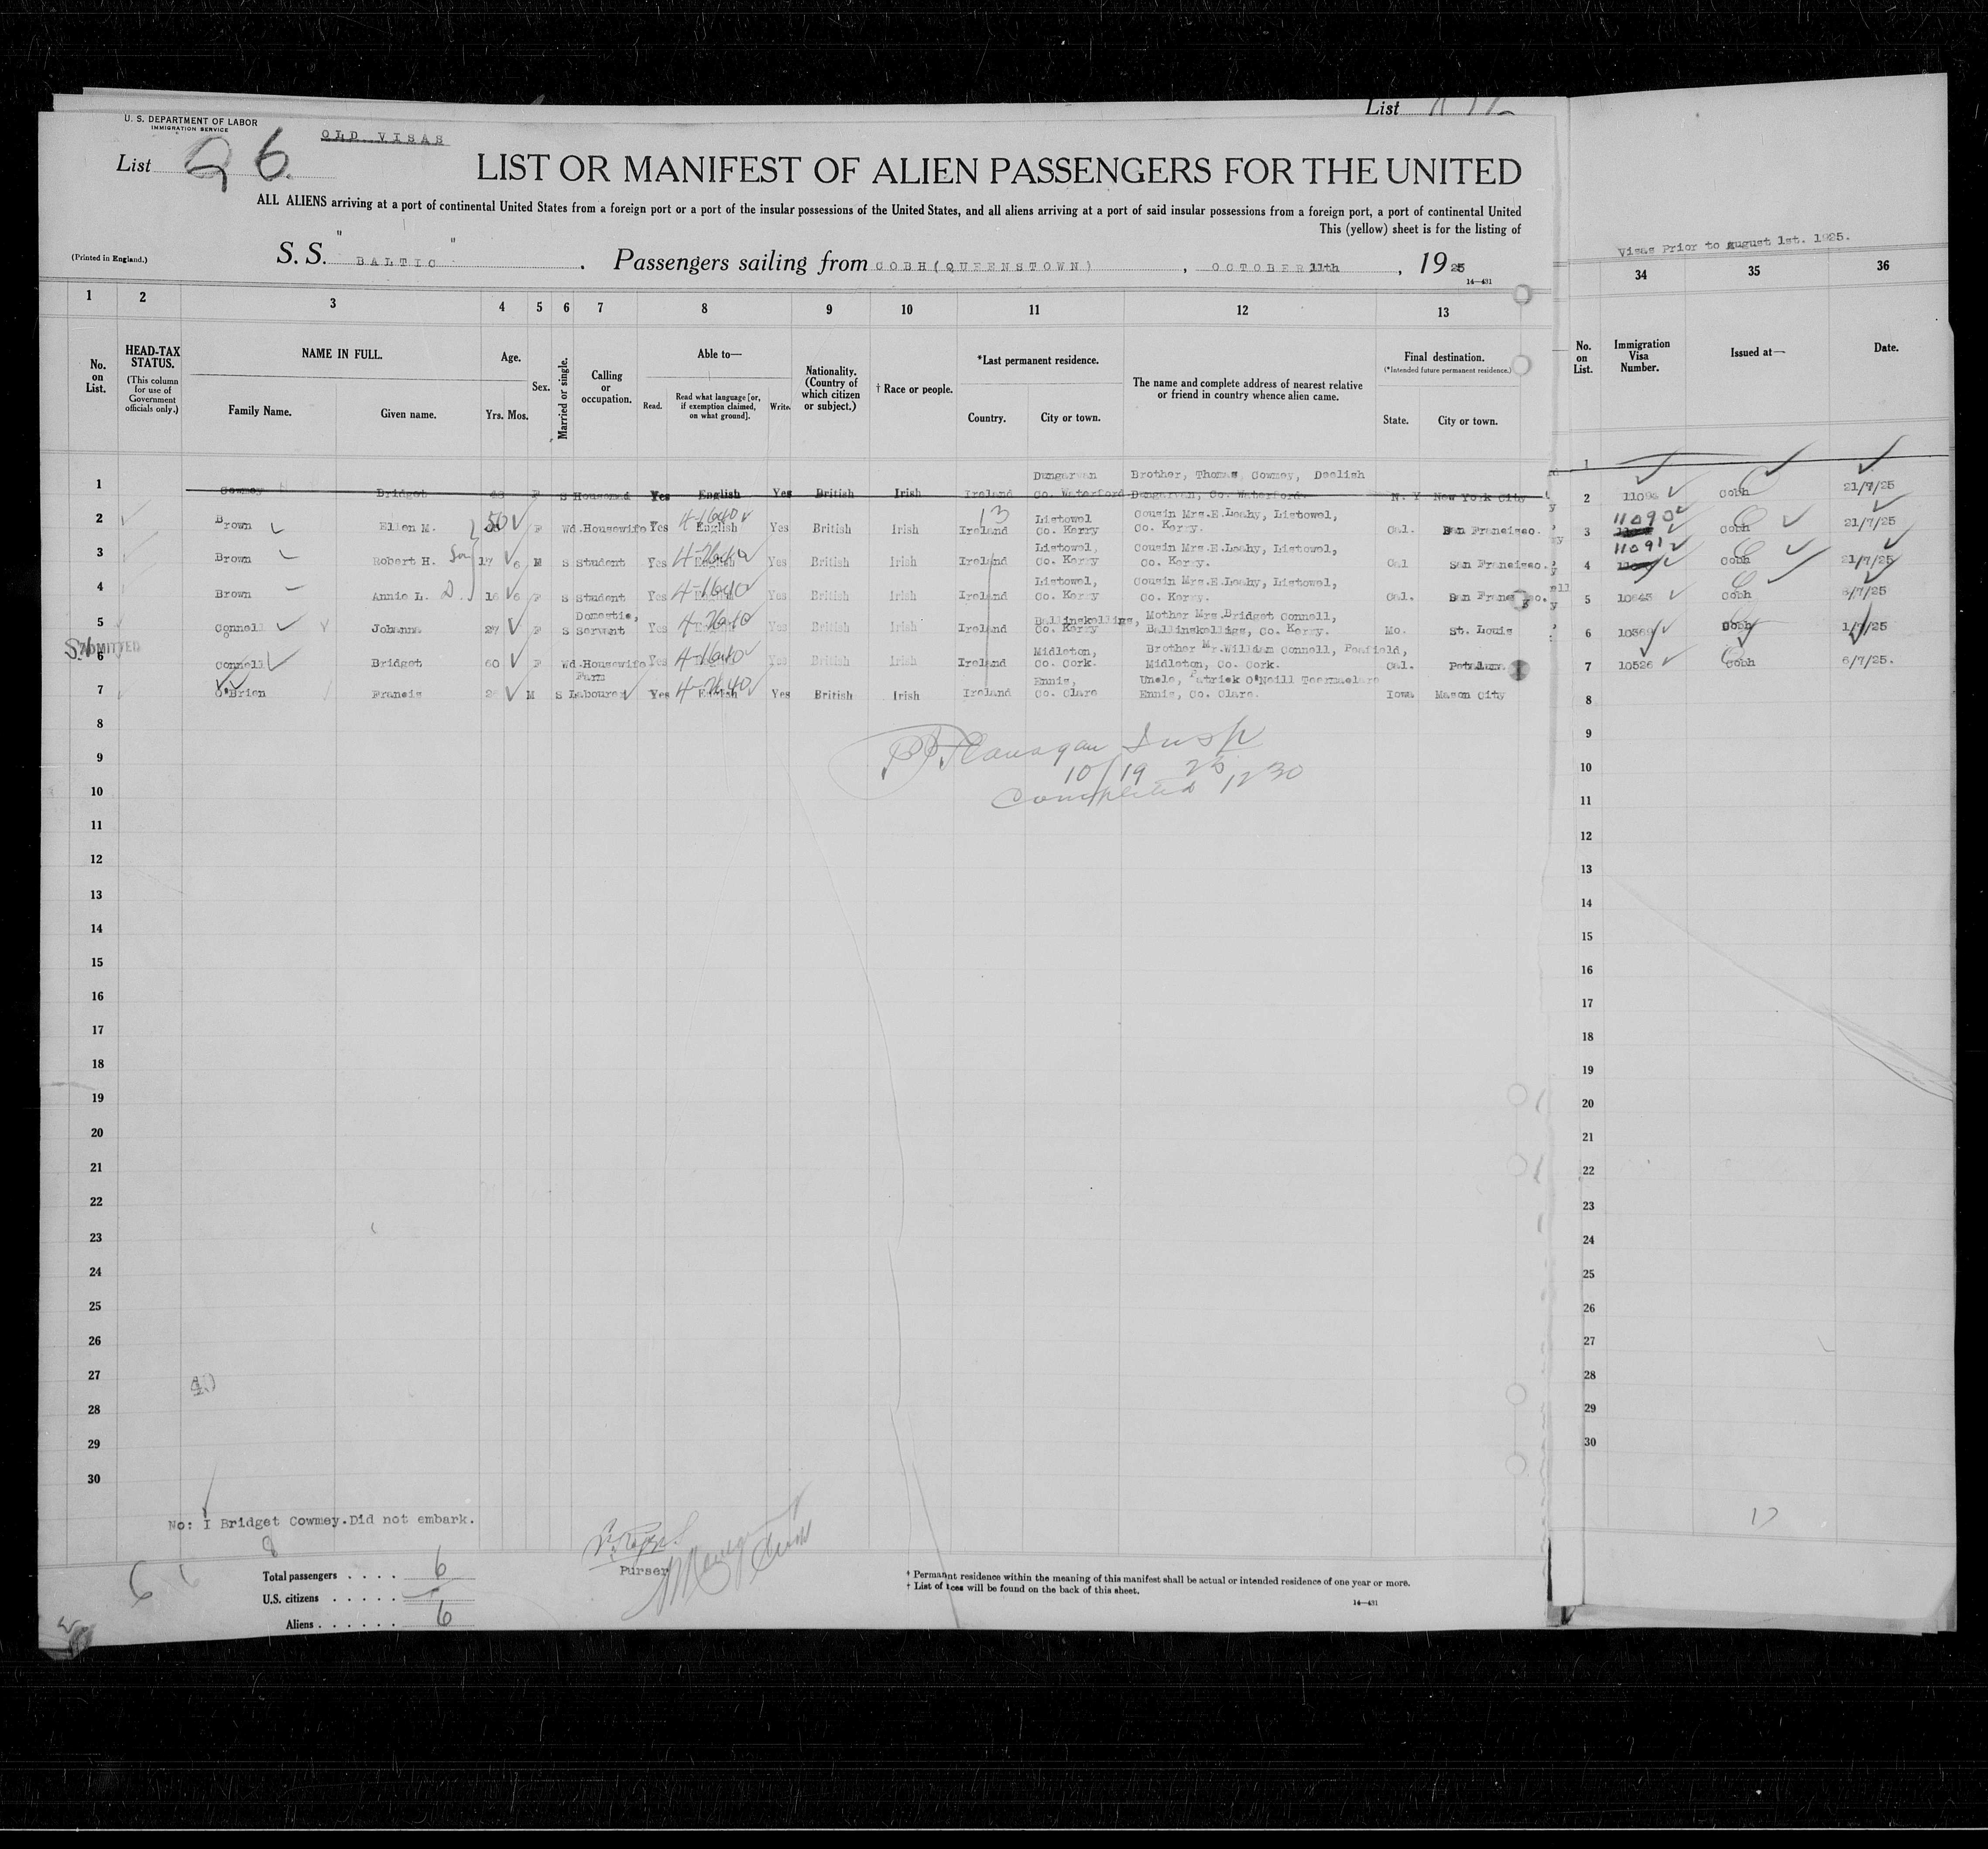 U. S. DEPARTMENT OF LABOR
IMMIGRATION SERVICE
OLD VISAS
List 26.
List
LIST OR MANIFEST OF ALIEN PASSENGERS FOR THE UNITED
ALL ALIENS arriving at a port of continental United States from a foreign port or a port of the insular possessions of the United States, and all aliens arriving at a port of said insular possessions from a foreign port, a port of continental United
This (yellow) sheet is for the listing of
(Printed in England.)
S. S. "BALTIC" . Passengers sailing from COBH(QUEENSTOWN) , OCTOBER 11th , 19 25
14—431
Visas Prior to August 1st. 1925.
1 2 3 4 5 6 7 8 9 10 11 12 13
34 35 36
No. on List.
HEAD-TAX STATUS.
(This column for use of Government officials only.)
NAME IN FULL.
Family Name. Given name.
Age.
Yrs. Mos.
Sex.
Married or single.
Calling or occupation.
Able to—
Read. Read what language [or, if exemption claimed, on what ground]. Write.
Nationality. (Country of which citizen or subject.)
† Race or people.
*Last permanent residence.
Country. City or town.
The name and complete address of nearest relative or friend in country whence alien came.
Final destination.
(*Intended future permanent residence.)
State. City or town.
No. on List.
Immigration Visa Number.
Issued at—
Date.
1 Cowmey Bridget F S Housemd Yes English Yes British Irish Ireland Dungarvan Co. Waterford Brother, Thomas Cowmey, Deelish Dungarvan, Co. Waterford. N. Y New York City
2 Brown Ellen M. 50 F Wd. Housewife Yes English Yes British Irish Ireland Listowel Co. Kerry Cousin Mrs.E.Leahy, Listowel, Co. Kerry. Cal. San Francisco.
3 Brown Robert H. Son 17 6 M S Student Yes English Yes British Irish Ireland Listowel, Co. Kerry Cousin Mrs.E.Leahy, Listowel, Co. Kerry. Cal San Francisco.
4 Brown Annie L. D. 16 6 F S Student Yes English Yes British Irish Ireland Listowel, Co. Kerry Cousin Mrs.E.Leahy, Listowel, Co. Kerry. Cal. San Francisco.
5 Connell Johanna 27 F S Domestic, Servant Yes English Yes British Irish Ireland Ballinskelligs, Co. Kerry Mother Mrs.Bridget Connell, Ballinskelligs, Co. Kerry. Mo. St. Louis
ADMITTED
6 Connell Bridget 60 F Wd. Housewife Yes English Yes British Irish Ireland Midleton, Co. Cork. Brother Mr.William Connell, Peafield, Midleton, Co. Cork. Cal. Petaluma.
7 O'Brien Francis M S Farm Labourer Yes English Yes British Irish Ireland Ennis, Co. Clare Uncle, Patrick O'Neill Ennis, Co. Clare. Iowa Mason City
1
2 Cobh 21/7/25
3 11090 Cobh 21/7/25
4 11091 Cobh 21/7/25
5 Cobh 6/7/25
6 10569 Cobh 1/7/25
7 10526 Cobh 6/7/25.
Flanagan Insp
10/19 25
Completed 12 30
8
9
10
11
12
13
14
15
16
17
18
19
20
21
22
23
24
25
26
27
28
29
30
8
9
10
11
12
13
14
15
16
17
18
19
20
21
22
23
24
25
26
27
28
29
30
No: I Bridget Cowmey.Did not embark.
Total passengers . . . . 6
U.S. citizens . . . . .
Aliens . . . . . . 6
6
Purser
* Permanent residence within the meaning of this manifest shall be actual or intended residence of one year or more.
† List of races will be found on the back of this sheet.
14—431